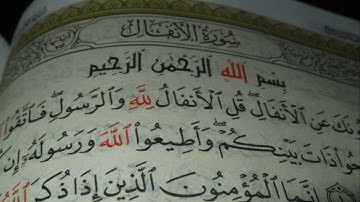 سُورَةُ الأَنفَالِ
بِسْمِ ٱللَّهِ ٱلرَّحْمَٰنِ ٱلرَّحِيمِ
عَنِ ٱلْأَنفَالِ ۖ قُلِ ٱلْأَنفَالُ لِلَّهِ وَٱلرَّسُولِ ۖ فَٱتَّقُوا۟
ذَاتَ بَيْنِكُمْ ۖ وَأَطِيعُوا۟ ٱللَّهَ وَرَسُولَهُۥٓ إِن
إِنَّمَا ٱلْمُؤْمِنُونَ ٱلَّذِينَ إِذَا ذُكِرَ